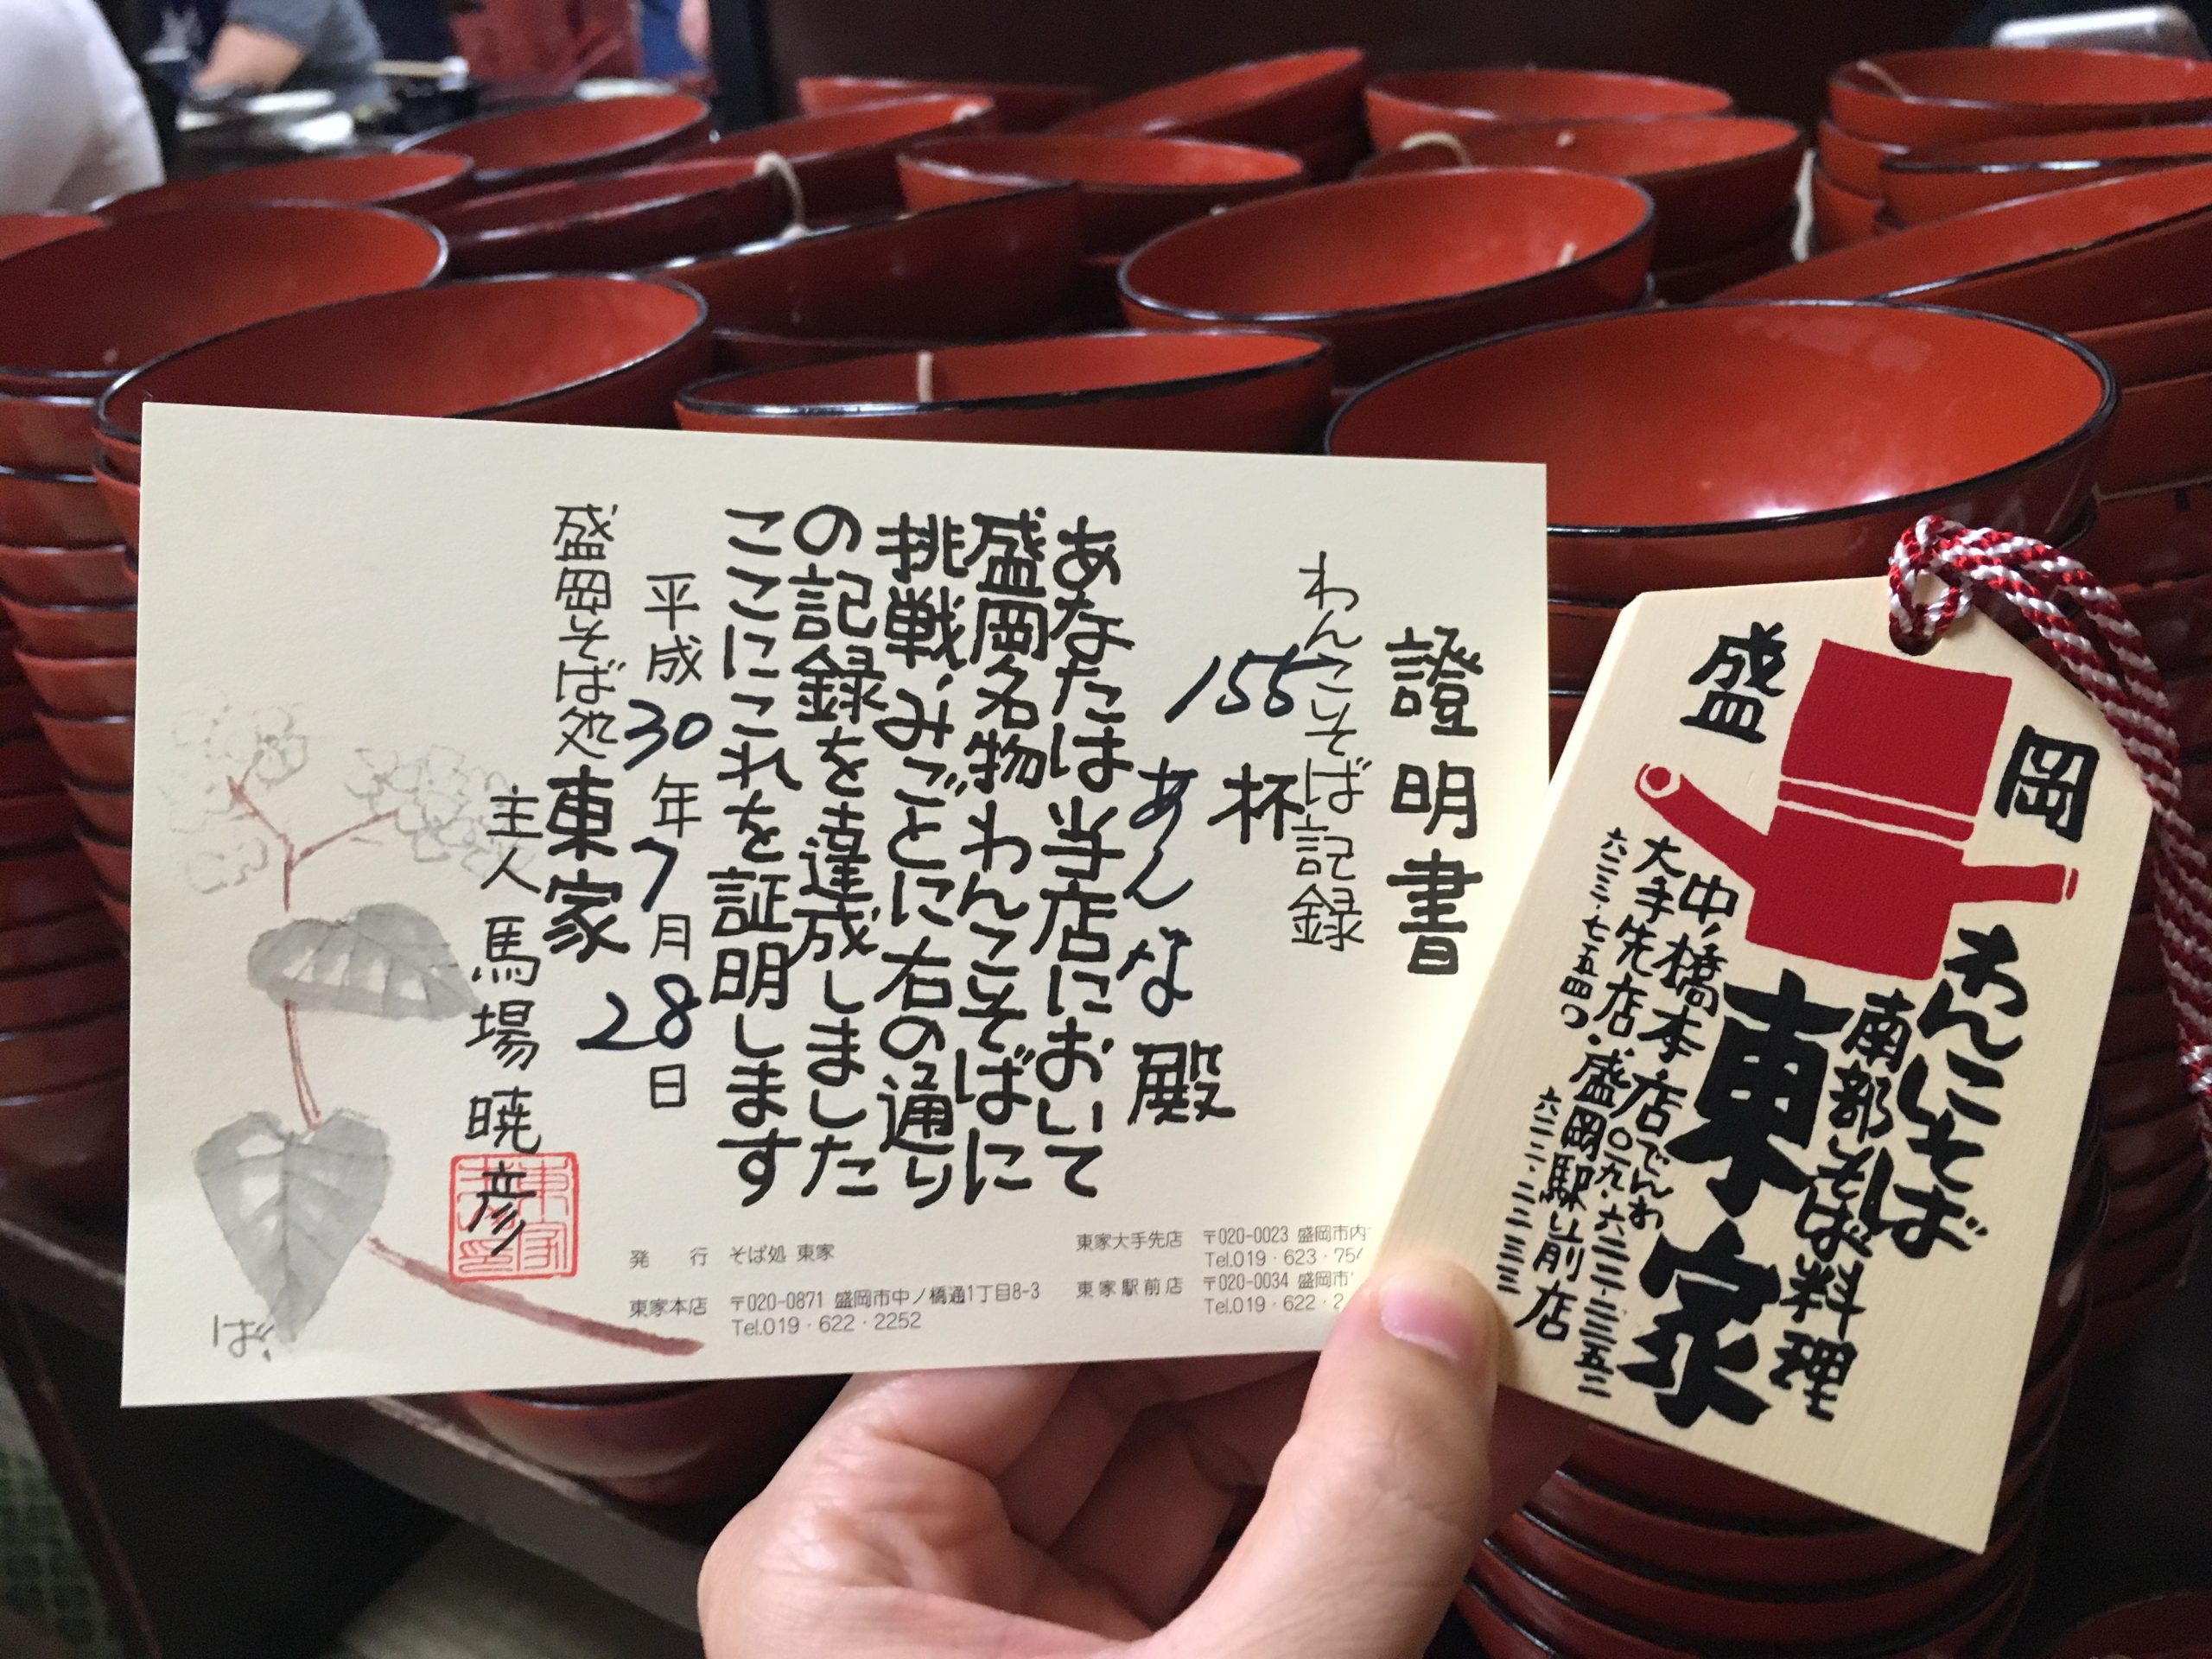 證明書
わんこそば記録
155杯
あんな殿
あなたは当店において
盛岡名物わんこそばに
挑戦みごとに右の通り
の記録を達成しました
ここにこれを証明します
平成30年7月28日
盛岡そば処東家
主人馬場暁彦
ば
発行 そば処 東家
東家本店 〒020-0871 盛岡市中ノ橋通1丁目8-3
Tel.019・622・2252
東家大手先店 〒020-0023 盛岡市内
Tel.019・623・75
東家駅前店 〒020-0034 盛岡市
Tel.019・622・2
盛岡
わんこそば
南部そば料理
東家
中ノ橋本店でんわ〇一九・六二二・二二五二
大手先店・盛岡駅前店
六二三・七五四〇・六二二・二二三三